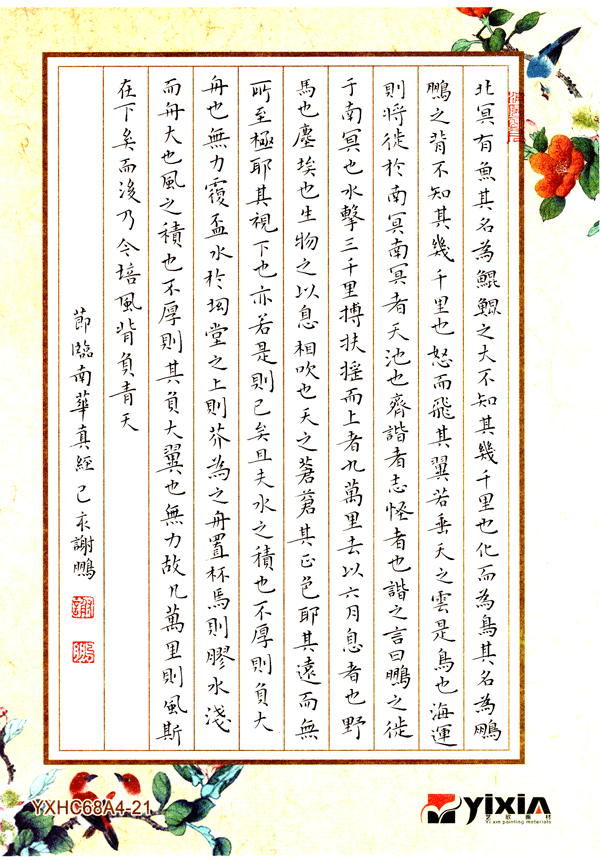 北冥有魚其名為鯤鯤之大不知其幾千里也化而為鳥其名為鵬
鵬之背不知其幾千里也怒而飛其翼若垂天之雲是鳥也海運
則將徙於南冥南冥者天池也齊諧者志怪者也諧之言曰鵬之徙
于南冥也水擊三千里搏扶搖而上者九萬里去以六月息者也野
馬也塵埃也生物之以息相吹也天之蒼蒼其正色耶其遠而無
所至極耶其視下也亦若是則已矣且夫水之積也不厚則負大
舟也無力覆盃水於坳堂之上則芥為之舟置杯焉則膠水淺
而舟大也風之積也不厚則其負大翼也無力故九萬里則風斯
在下矣而後乃今培風背負青天
節臨南華真經己亥謝鵬
YXHC68A4-21
YIXIN
艺欣画材
Yi xin painting materials